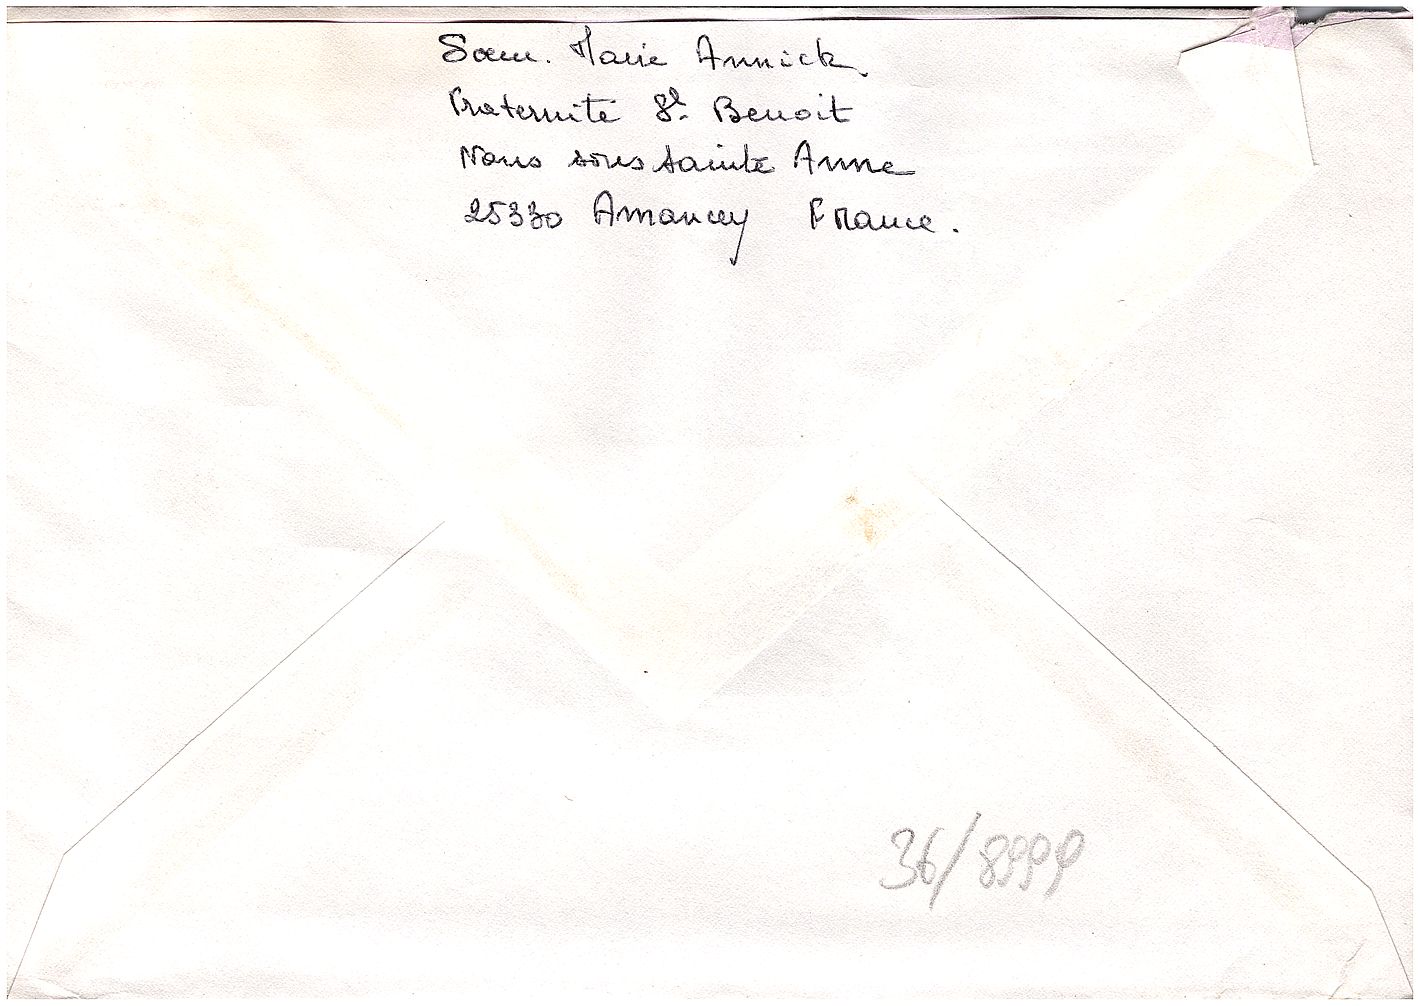 Sœur. Marie Annick.
Fraternité St. Benoit
Nans sous sainte Anne
25330 Amancey France.
36/8999